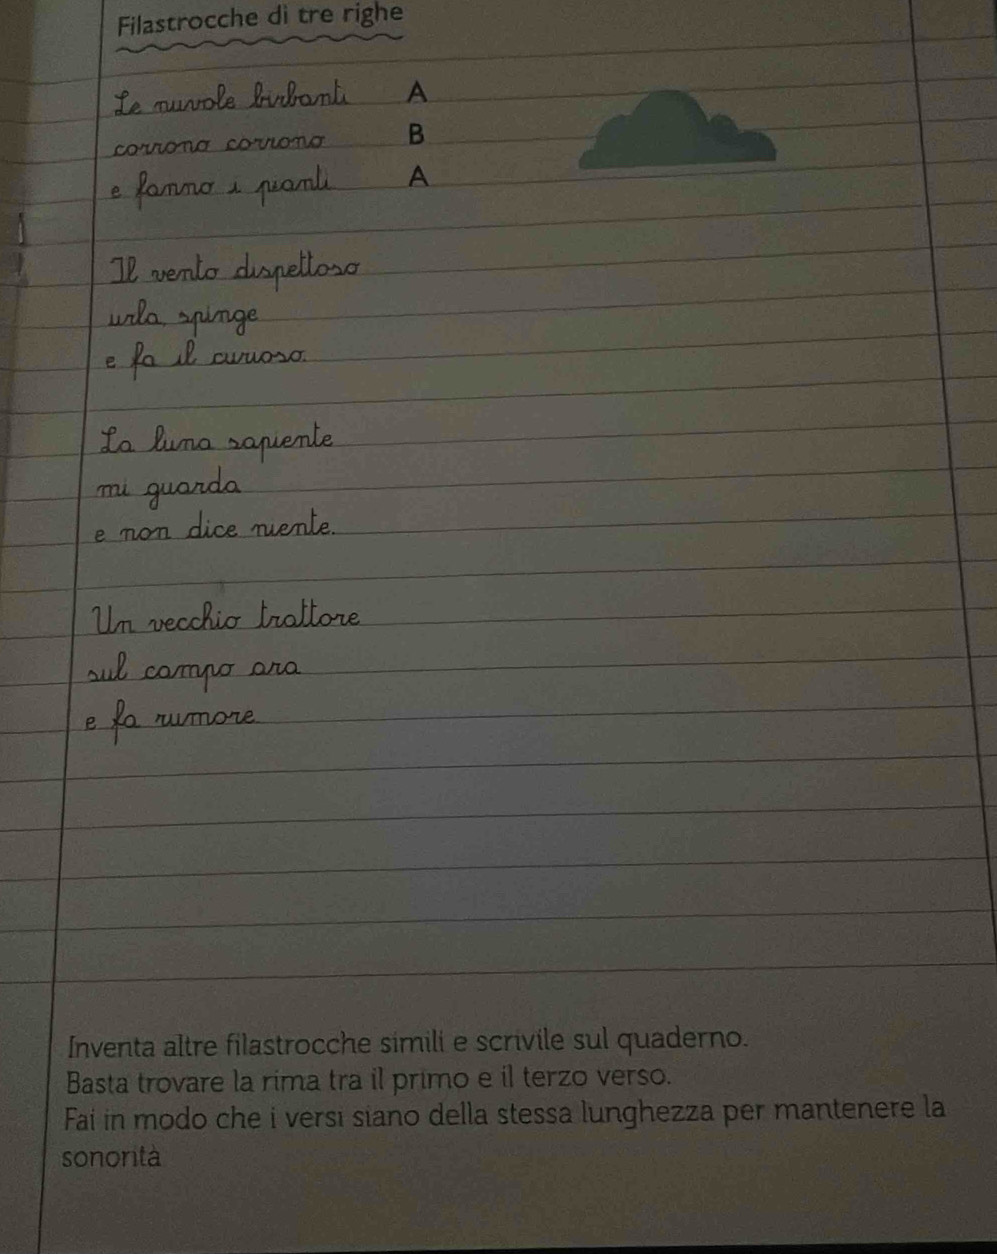 Filastrocche di tre righe
Le nuvole birbanti A
corrono corrono B
e fanno i pianti A
Il vento dispettoso
urla, spinge
e fa il curioso.
La luna sapiente
mi guarda
e non dice niente.
Un vecchio trattore
sul campo ara
e fa rumore
Inventa altre filastrocche simili e scrivile sul quaderno.
Basta trovare la rima tra il primo e il terzo verso.
Fai in modo che i versi siano della stessa lunghezza per mantenere la
sonorità